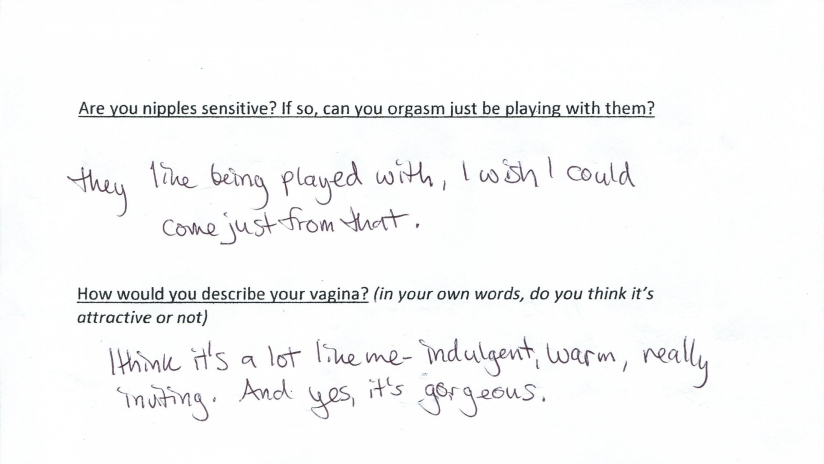 Are you nipples sensitive? If so, can you orgasm just be playing with them?
they like being played with, I wish I could
come just from that.
How would you describe your vagina? (in your own words, do you think it's
attractive or not)
I think it's a lot like me- indulgent, warm, really
inviting. And yes, it's gorgeous.